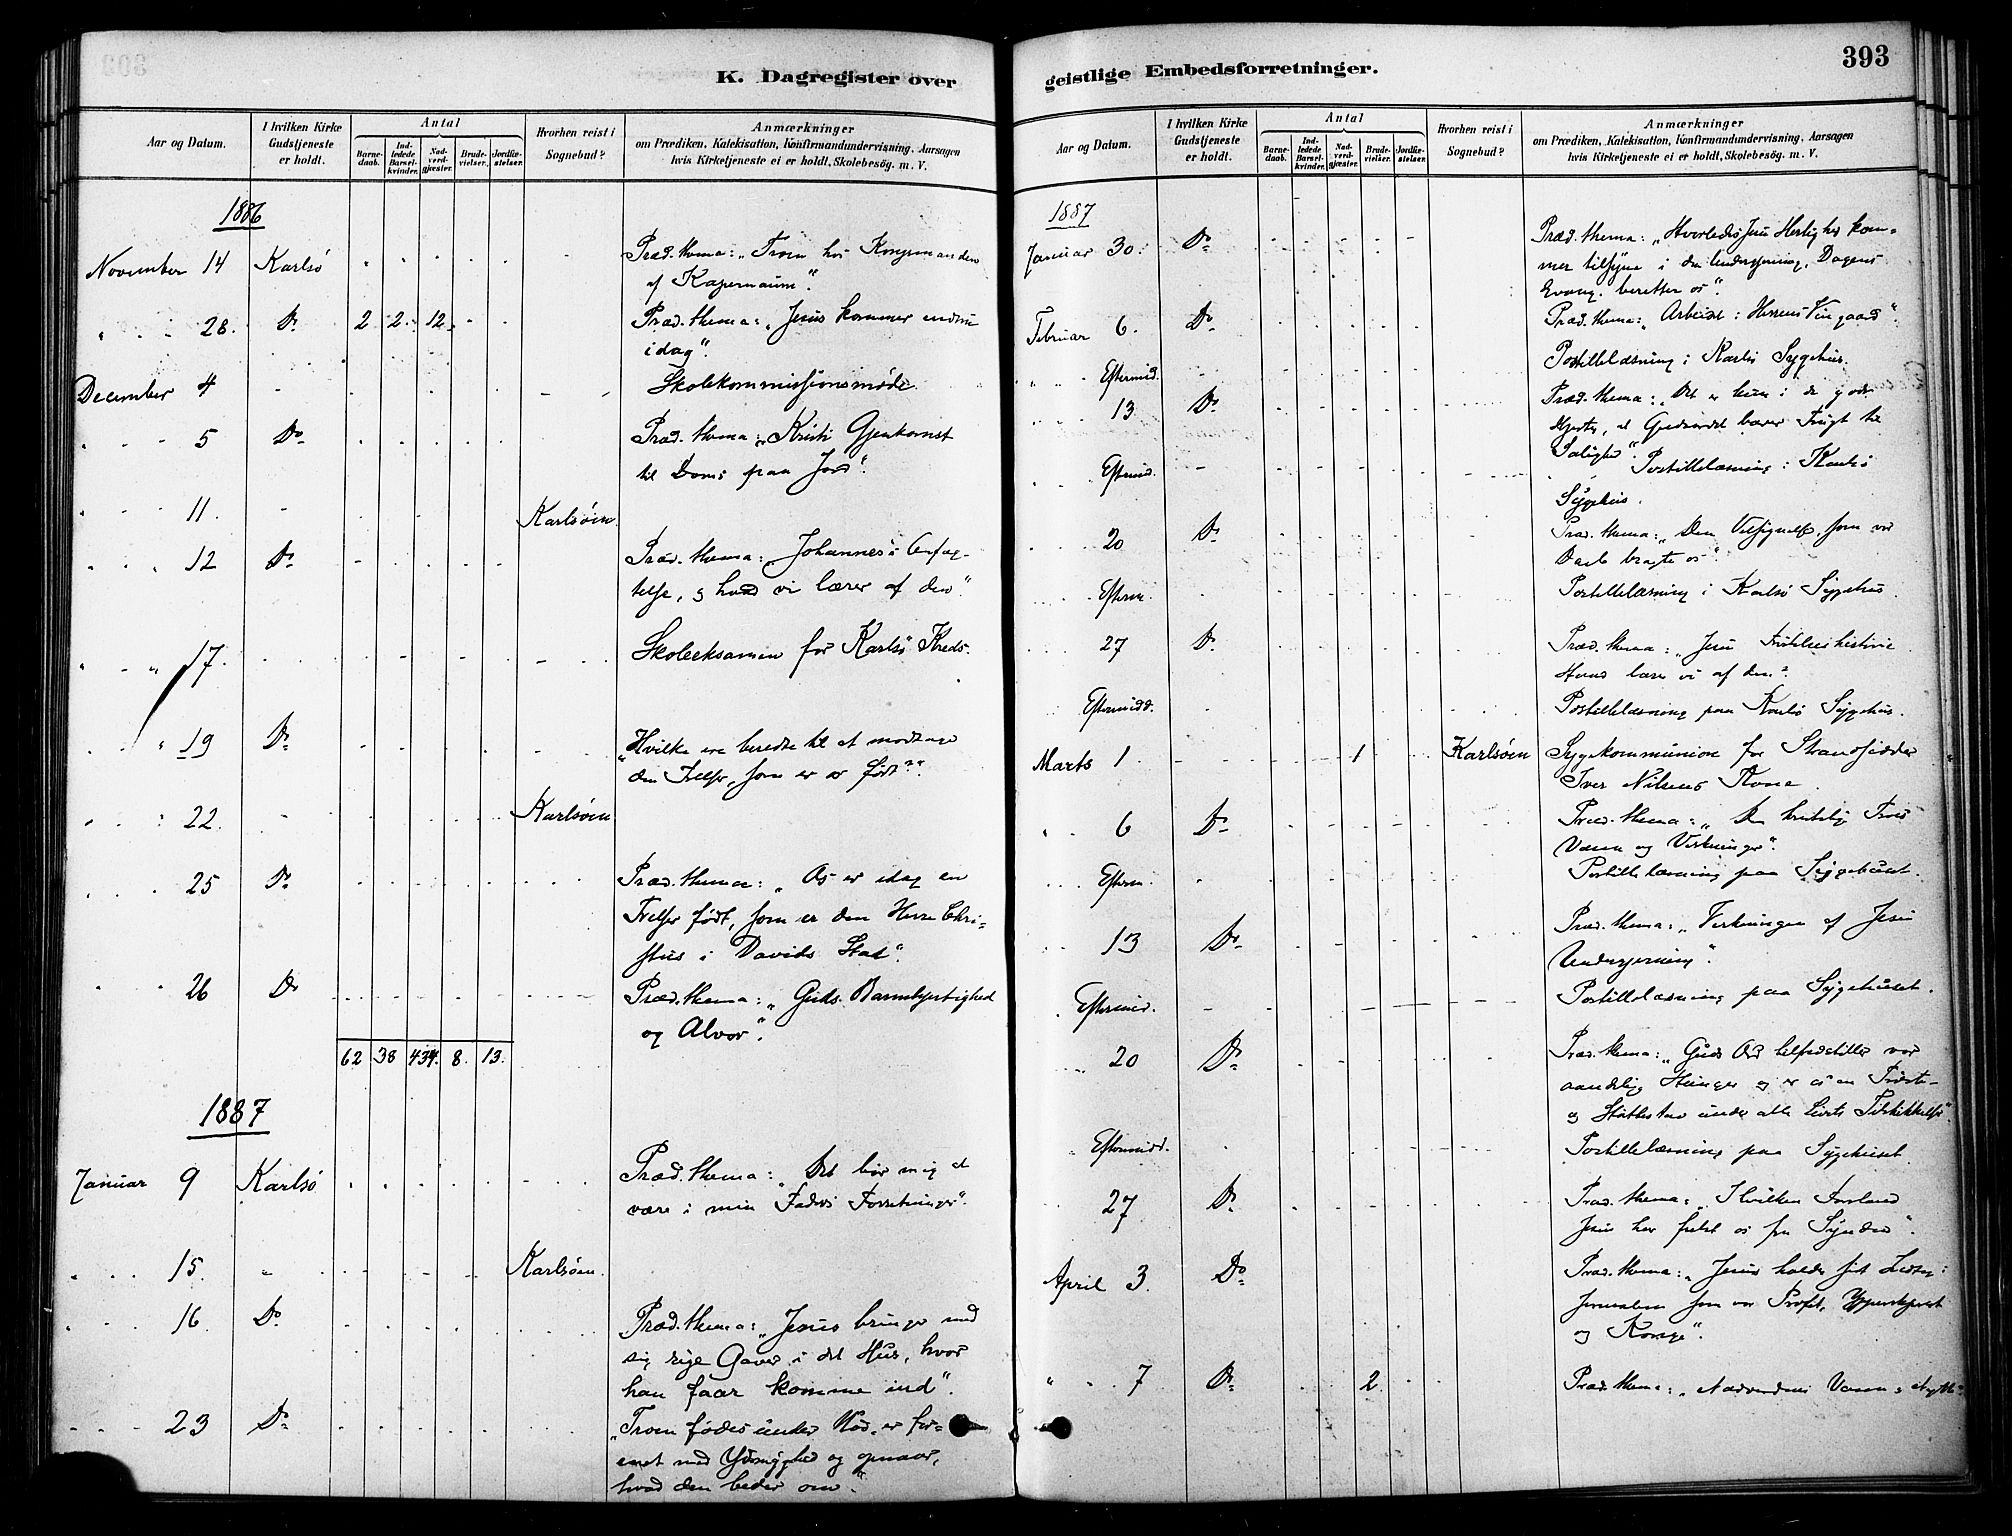 K. Dagregister over
Aar og Datum. I hvilken Kirke Gudstjeneste er holdt. Antal Barnedaab. Indledede Barselkvinder. Nadverdgjæster. Brudevielser. Jordfæstelser. Hvorhen reist i Sognebud? Anmærkninger om Prædiken, Katekisation, Konfirmandundervisning, Aarsagen hvis Kirketjeneste ei er holdt, Skolebesøg. m. V.
1886
November 14 Karlsö Præd. thema: „Troen hos Kongsmanden
af Kapernaum".
28. Do 2 2 12 Præd. thema: „Jesus kommer endnu
idag".
December 4 Skolekommissionsmöde
5 Do Præd. thema: „Kristi Gjenkomst
til Dom paa Jord".
11. Karlsöen.
12 Do Præd. thema: „Johannes's Anfæg-
telse, og hvad vi lærer af den".
17. Skoleeksamen for Karlsö Kreds.
19 Do „Hvilke ere beredte til at modtage
den Frelser, som er os født?".
22. Karlsöen
25 Do Præd. thema: „Os er idag en
Frelser født, som er den Herre Chri-
stus i Davids Stad".
26 Do Præd. thema: „Guds Barmhjertighed
og Alvor".
62 38 434. 8. 13.
1887
Januar 9 Karlsö Præd. thema: „Det bør mig at
være i min Faders Forretninger".
15. Karlsöen.
16 Do Præd. thema: „Jesus bringer med
sig rige Gaver i det Hus, hvor
han faar komme ind".
23 Do „Troen fødes under Nød, er for-
enet med Ydmyghed og opnaar,
hvad den beder om".
geistlige Embedsforretninger.
393
Aar og Datum. I hvilken Kirke Gudstjeneste er holdt. Antal Barnedaab. Indledede Barselkvinder. Nadverdgjæster. Brudevielser. Jordfæstelser. Hvorhen reist i Sognebud? Anmærkninger om Prædiken, Katekisation, Konfirmandundervisning, Aarsagen hvis Kirketjeneste ei er holdt, Skolebesøg. m. V.
1887
Januar 30. Do Præd. thema: „Hvorledes Jesu Herlighed kom-
mer tilsyne i den Undergjerning, Dagens
Evang. beretter os".
Februar 6. Do Præd. thema: „Arbeidet i Herrens Vingaard".
Eftermid. Postillelæsning i Karlsö Sygehus.
13 Do Præd. thema: „Det er kun i de gode
Hjerter, at Guds ord bærer Frugt til
Salighed".
Eftermid. Postillelæsning i Karlsö
Sygehus.
20 Do Præd. thema: „Den Velsignelse, som vor
Daab bragte os".
Efterm. Postillelæsning i Karlsö Sygehus.
27 Do Præd. thema: „Jesu Fristelseshistorie.
Hvad lærer vi af den?
Eftermidd. Postillelæsning paa Karlsö Sygehus.
Marts 1. 1 Karlsöen Sygekommunion for Strandsidder
Iver Nilsens Kone.
6 Do Præd. thema: „Den kristelige Troes
Væsen og Virkninger".
Efterm. Postillelæsning paa Sygehuset.
13 Do Præd. thema: „Virkningen af Jesu
Undergjerning".
Eftermid. Postillelæsning paa Sygehuset.
20 Do Præd. thema: „Guds Ord tilfredsstiller vor
aandelige Hunger og er os en Trøste-
og Støttestav under alle Livets Tilskikkelser".
Eftermidd. Postillelæsning paa Sygehuset
27 Do Præd. thema: „I hvilken Forstand
Jesus har frelst os fra Synden".
April 3. Do Præd. thema: „Jesus holder sit Indtog i
Jerusalem som vor Profet, Ypperstepræst
og Konge".
7 Do 2 Præd. thema: „Nadverdens Væsen og Nytte"